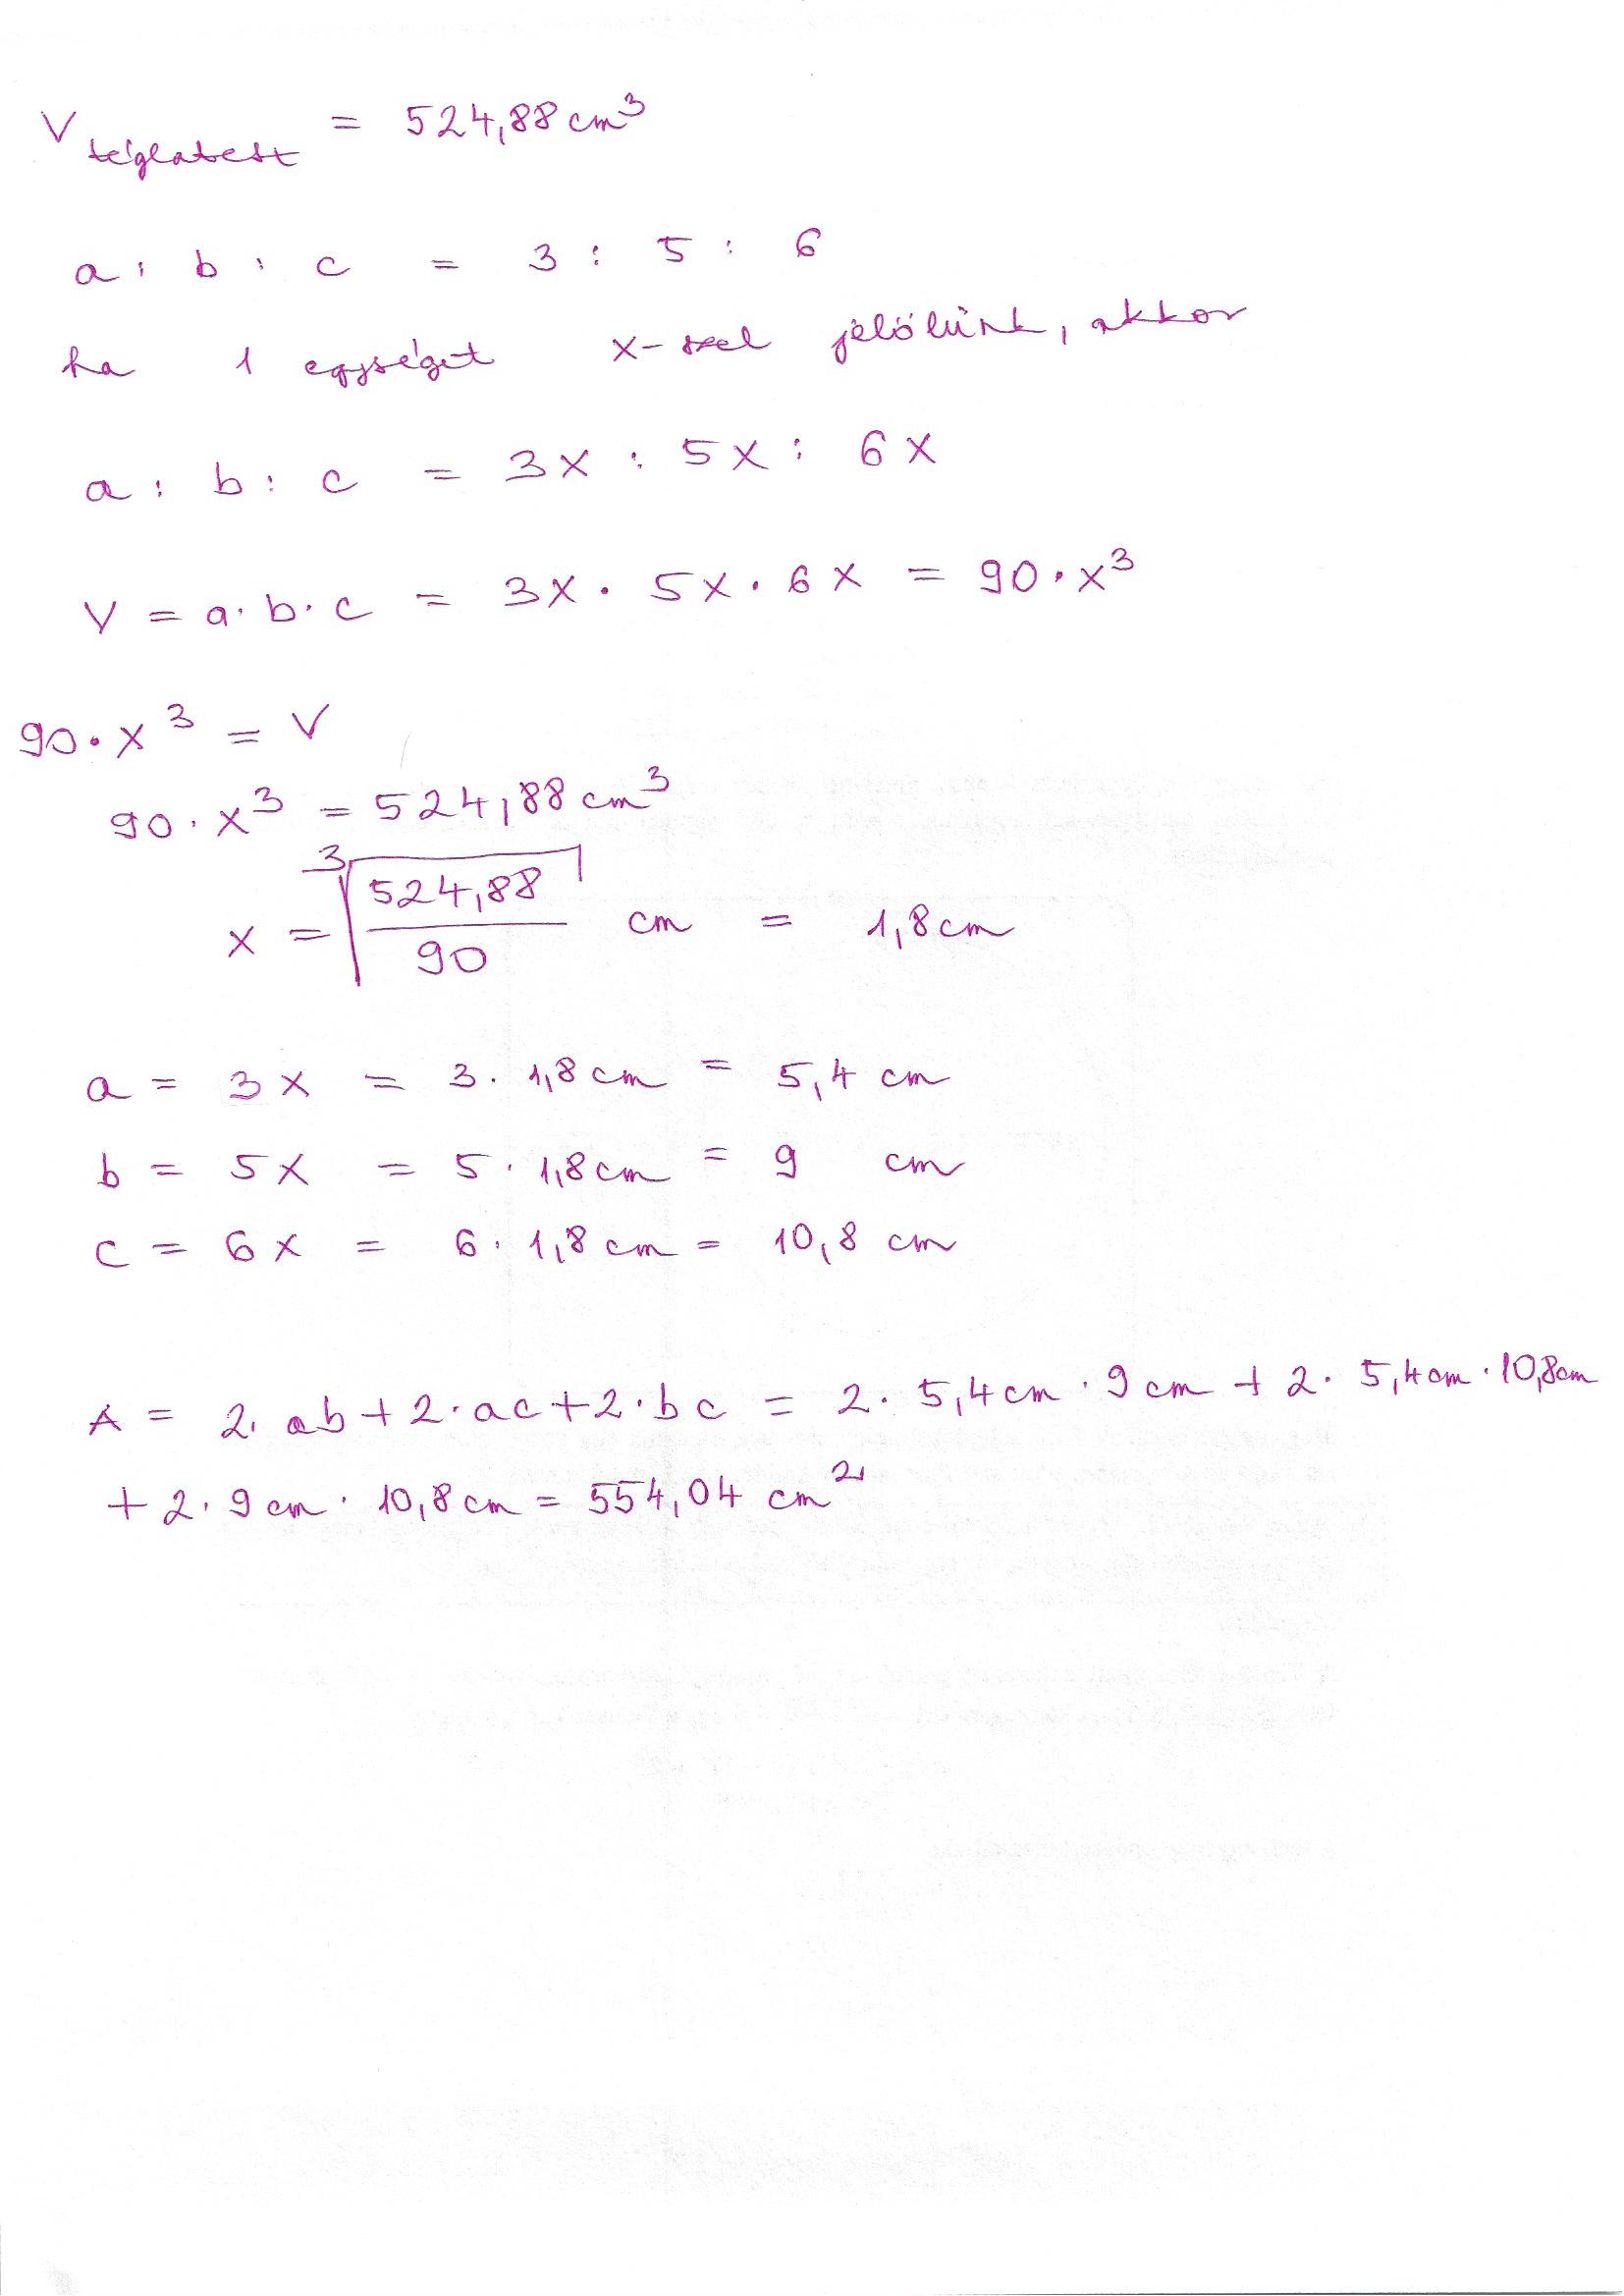 V téglatest = 524,88 cm³
a : b : c = 3 : 5 : 6
ha 1 egységet x-szel jelölünk, akkor
a : b : c = 3x : 5x : 6x
V = a·b·c = 3x · 5x · 6x = 90·x³
90·x³ = V
90·x³ = 524,88 cm³
x = ³√(524,88/90) cm = 1,8 cm
a = 3x = 3·1,8 cm = 5,4 cm
b = 5x = 5·1,8 cm = 9 cm
c = 6x = 6·1,8 cm = 10,8 cm
A = 2·ab+2·ac+2·bc = 2·5,4cm·9cm + 2·5,4cm·10,8cm
+ 2·9cm·10,8cm = 554,04 cm²